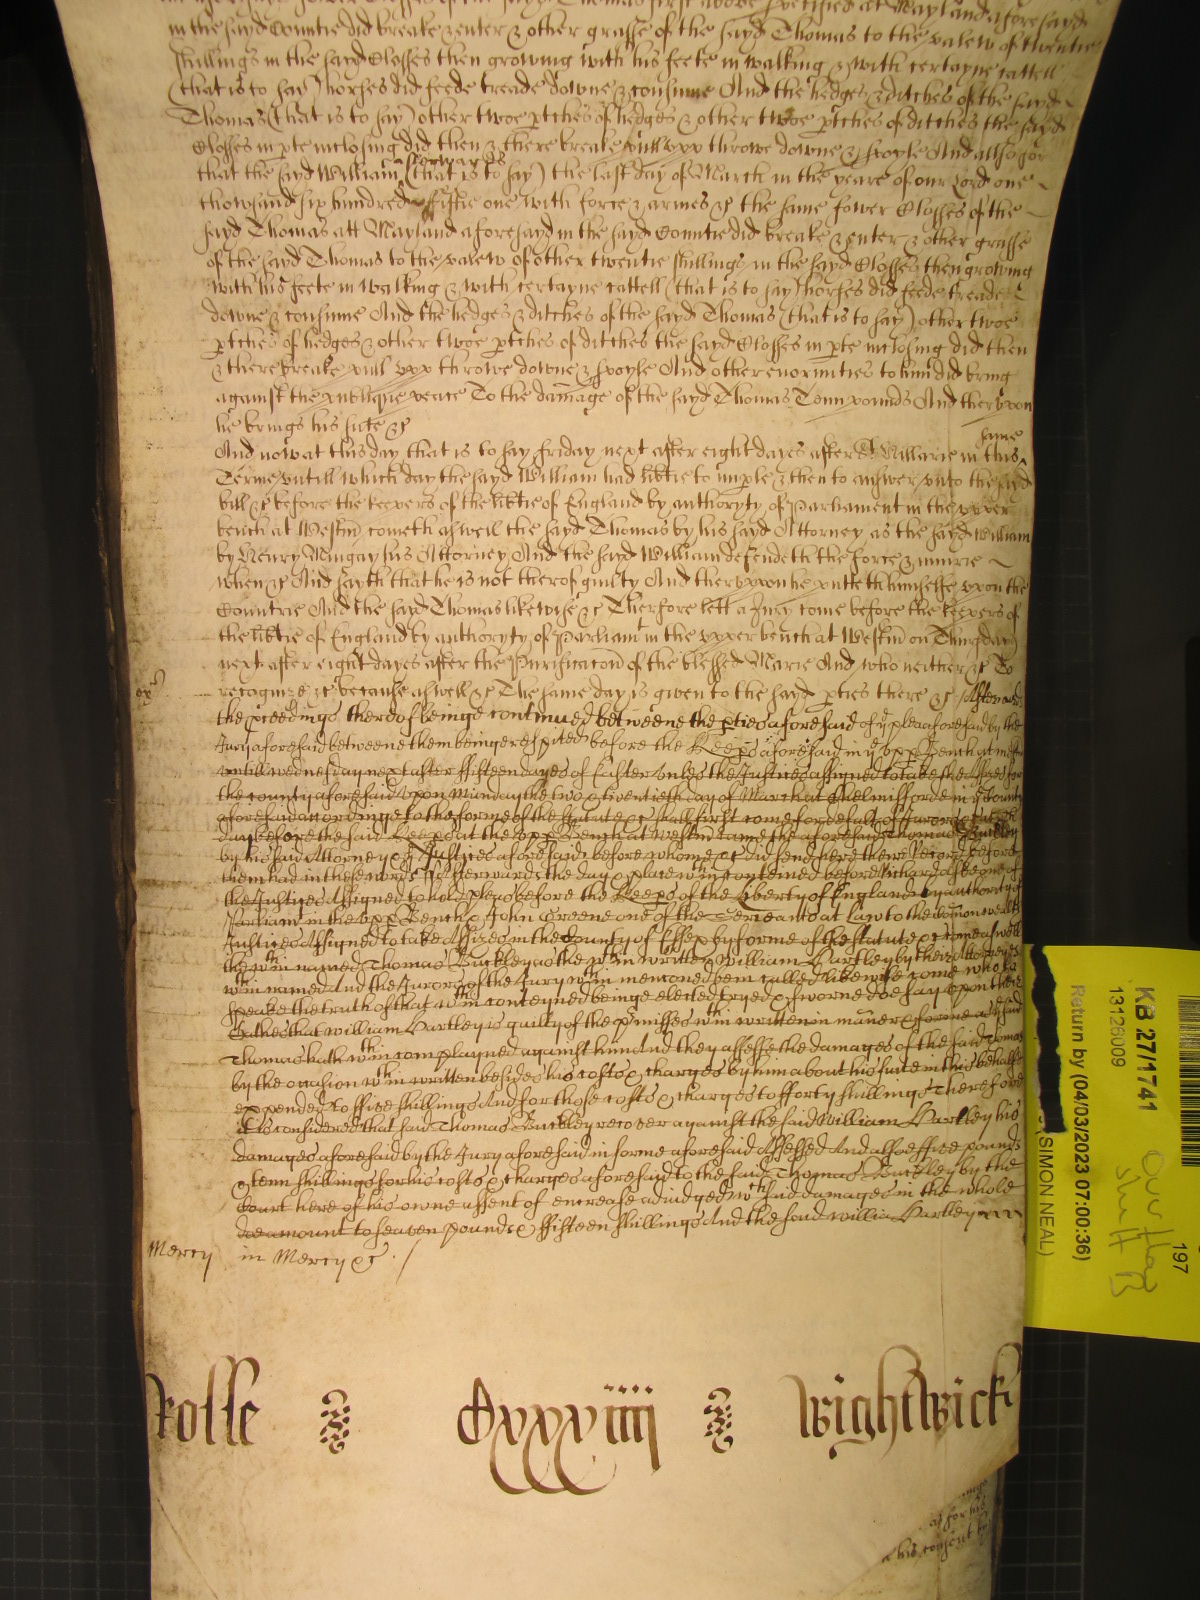 in the sayd Countie did breake & enter & other grasse of the sayd Thomas to the valew of twentie
shillings in the sayd Closses then growing with his feete in walking & with certayne cattell
(that is to say) horses did feede treade downe & consume And the hedges & ditches of the sayd
Thomas (that is to say) other twoe pches of hedges & other twoe pches of ditches the sayd
Closses in pte inclosing did then & there breake pull vpp throwe downe & spoyle And allso for
that the sayd William afterwards (that is to say) the last day of March in the yeare of our Lord one
thowsand six hundred fiftie one with force & armes &c the same fower Closses of the
sayd Thomas att Mayland aforesayd in the sayd Countie did breake & enter & other grasse
of the sayd Thomas to the valew of other twentie shillings in the sayd Closses then growing
with his feete in walking & with certayne cattell (that is to say) horses did feede treade
downe & consume And the hedges & ditches of the sayd Thomas (that is to say) other twoe
pches of hedges & other twoe pches of ditches the sayd Closses in pte inclosing did then
& there breake pull vpp throwe downe & spoyle And other enormities to him did bring
against the publique peace To the damage of the sayd Thomas Tenn pounds And thervpon
he brings his sute &c
And now at this day that is to say Friday next after eight dayes after St Hillarie in this same
Terme vntill which day the sayd William had libtie to imple & then to answer vnto the sayd
bill &c before the keepers of the libtie of England by authoryty of Parliament in the vpper
bench at Westm cometh aswell the sayd Thomas by his sayd Attorney as the sayd William
by Henry Mingay his Attorney And the sayd William defendeth the force & iniurie
when &c And sayth that he is not therof guilty And thervppon he putteth himselfe vpon the
Countrie And the sayd Thomas likewise &c Therfore lett a Jury come before the keepers of
the libtie of England by authoryty of Parliamt in the vpper bench at Westm on Thursday
next after eight dayes after the Purificacon of the blessed Marie And who neither &c To
recognize &c because aswell &c The same day is given to the sayd pties there &c Afterwards
the pceedings therof beinge continued betweene the pties aforesaid of ye plea aforesaid by the
Jury aforesaid betweene them beinge respited before the Keeps aforesaid in ye vpp Bench at Westm
vntill wednesday next after fifteen dayes of Easter vnles the Justices assigned to take the Assizes for
the county aforesaid vpon Munday the two & twentieth day of March at Chelmisforde in ye County
aforesaid accordinge to the forme of the statute &c shall first come for default of Jurors &c
day before the said Keeps at the vpp Bench at Westm came the aforesaid Thomas Buckley
by his said Attorney & ye Justices aforesaid before whome &c did send here there Record before
them had in these words Afterwards the day & place wthin contened before Richard Aske one of
the Justices Assigned to hold pleas before the Keeps of the Liberty of England by authority of
Parliamt in the vpp Bench & John Greene one of the Serieants at Law to the Comonwealth
Justices Assigned to take Assizes in the County of Essex by forme of the statute &c come aswell
the wthin named Thomas Buckley as the wthin written William Hartley by their Attorneys
wthin named And the Jurors of the Jury wthin menconed bein called likewise come who to
speake the truth of that wthin conteyned beinge elected tryed & sworne doe say vpon their
Oathes that William Hartley is guilty of the pmisses wthin written in maner & forme as ye said
Thomas hath wthin complayned against him And they assesse the damages of the said Thomas
by the occasion wthin written besides his costs & charges by him about his suite in this behalfe
expended to five shillings And for those costs & charges to fforty shillings Therefore
it is considered that said Thomas Buckley recover against the said William Hartley his
damages aforesaid by the Jury aforesaid in forme aforesaid Assessed And also five pounds
& tenn shillings for his costs & charges aforesaid to the said Thomas Buckley by the
Court here of his owne assent of encrease adiudged wch said damages in the whole
doe amount to seaven pounds & fifteen shillings And the said William Hartley
Mercy in Mercy &c
Rolle Cxxxviiij Wightwick
as for his
his consent by
KB 27/1741
13126009
Return by (04/03/2023 07:00:36)
SIMON NEAL)
197